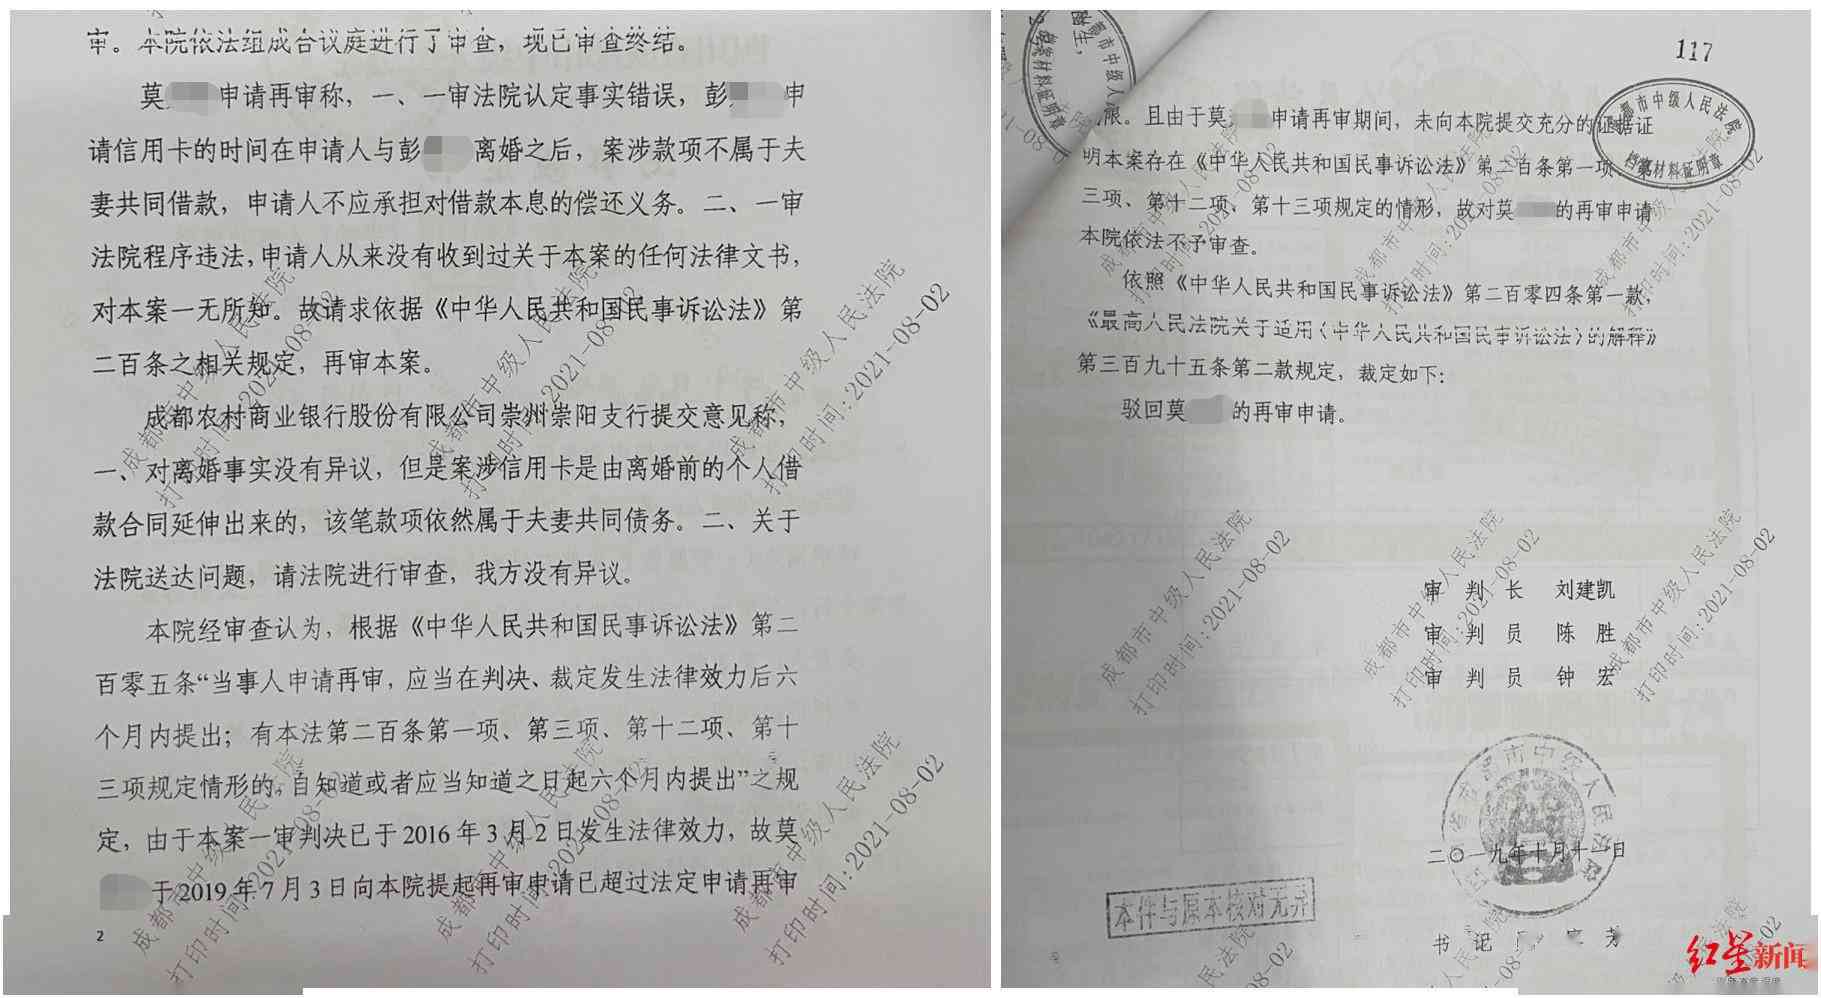 审。本院依法组成合议庭进行了审查，现已审查终结。
莫 申请再审称，一、一审法院认定事实错误，彭 申
请信用卡的时间在申请人与彭 离婚之后，案涉款项不属于夫
妻共同借款，申请人不应承担对借款本息的偿还义务。二、一审
法院程序违法，申请人从来没有收到过关于本案的任何法律文书，
对本案一无所知。故请求依据《中华人民共和国民事诉讼法》第
二百条之相关规定，再审本案。
成都农村商业银行股份有限公司崇州崇阳支行提交意见称，
一、对离婚事实没有异议，但是案涉信用卡是由离婚前的个人借
款合同延伸出来的，该笔款项依然属于夫妻共同债务。二、关于
法院送达问题，请法院进行审查，我方没有异议。
本院经审查认为，根据《中华人民共和国民事诉讼法》第二
百零五条“当事人申请再审，应当在判决、裁定发生法律效力后六
个月内提出；有本法第二百条第一项、第三项、第十二项、第十
三项规定情形的，自知道或者应当知道之日起六个月内提出”之规
定，由于本案一审判决已于2016年3月2日发生法律效力，故莫
于2019年7月3日向本院提起再审申请已超过法定申请再审
2
成都市中级人民法院
打印时间：2021-08-02
117
成都市中级人民法院
档案材料证明章
限。且由于莫 申请再审期间，未向本院提交充分的证据证
明本案存在《中华人民共和国民事诉讼法》第二百条第一项、第
三项、第十二项、第十三项规定的情形，故对莫 的再审申请
本院依法不予审查。
依照《中华人民共和国民事诉讼法》第二百零四条第一款，
《最高人民法院关于适用〈中华人民共和国民事诉讼法〉的解释》
第三百九十五条第二款规定，裁定如下：
驳回莫 的再审申请。
审 判 长 刘建凯
审 判 员 陈 胜
审 判 员 钟 宏
二〇一九年十月十一日
本件与原本核对无异
书 记
成都市中级人民法院
打印时间：2021-08-02
红星新闻